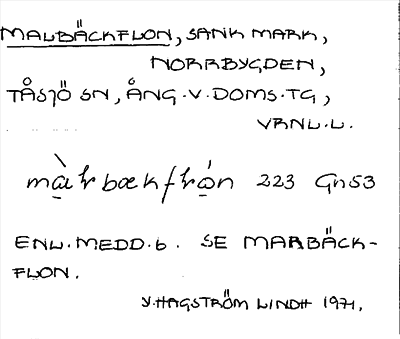 MALBÄCKFLON, SANK MARK,
NORRBYGDEN,
TÅSJÖ SN, ÅNG. V. DOMS. TG,
VRNL. L.
223 Gn53
ENL. MEDD. 6. SE MARBÄCK-
FLON.
Y. HAGSTRÖM LINDH 1971.